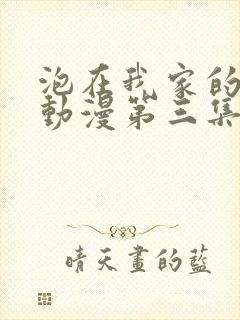 泡在我家的
動漫第三集
晴天畫的藍